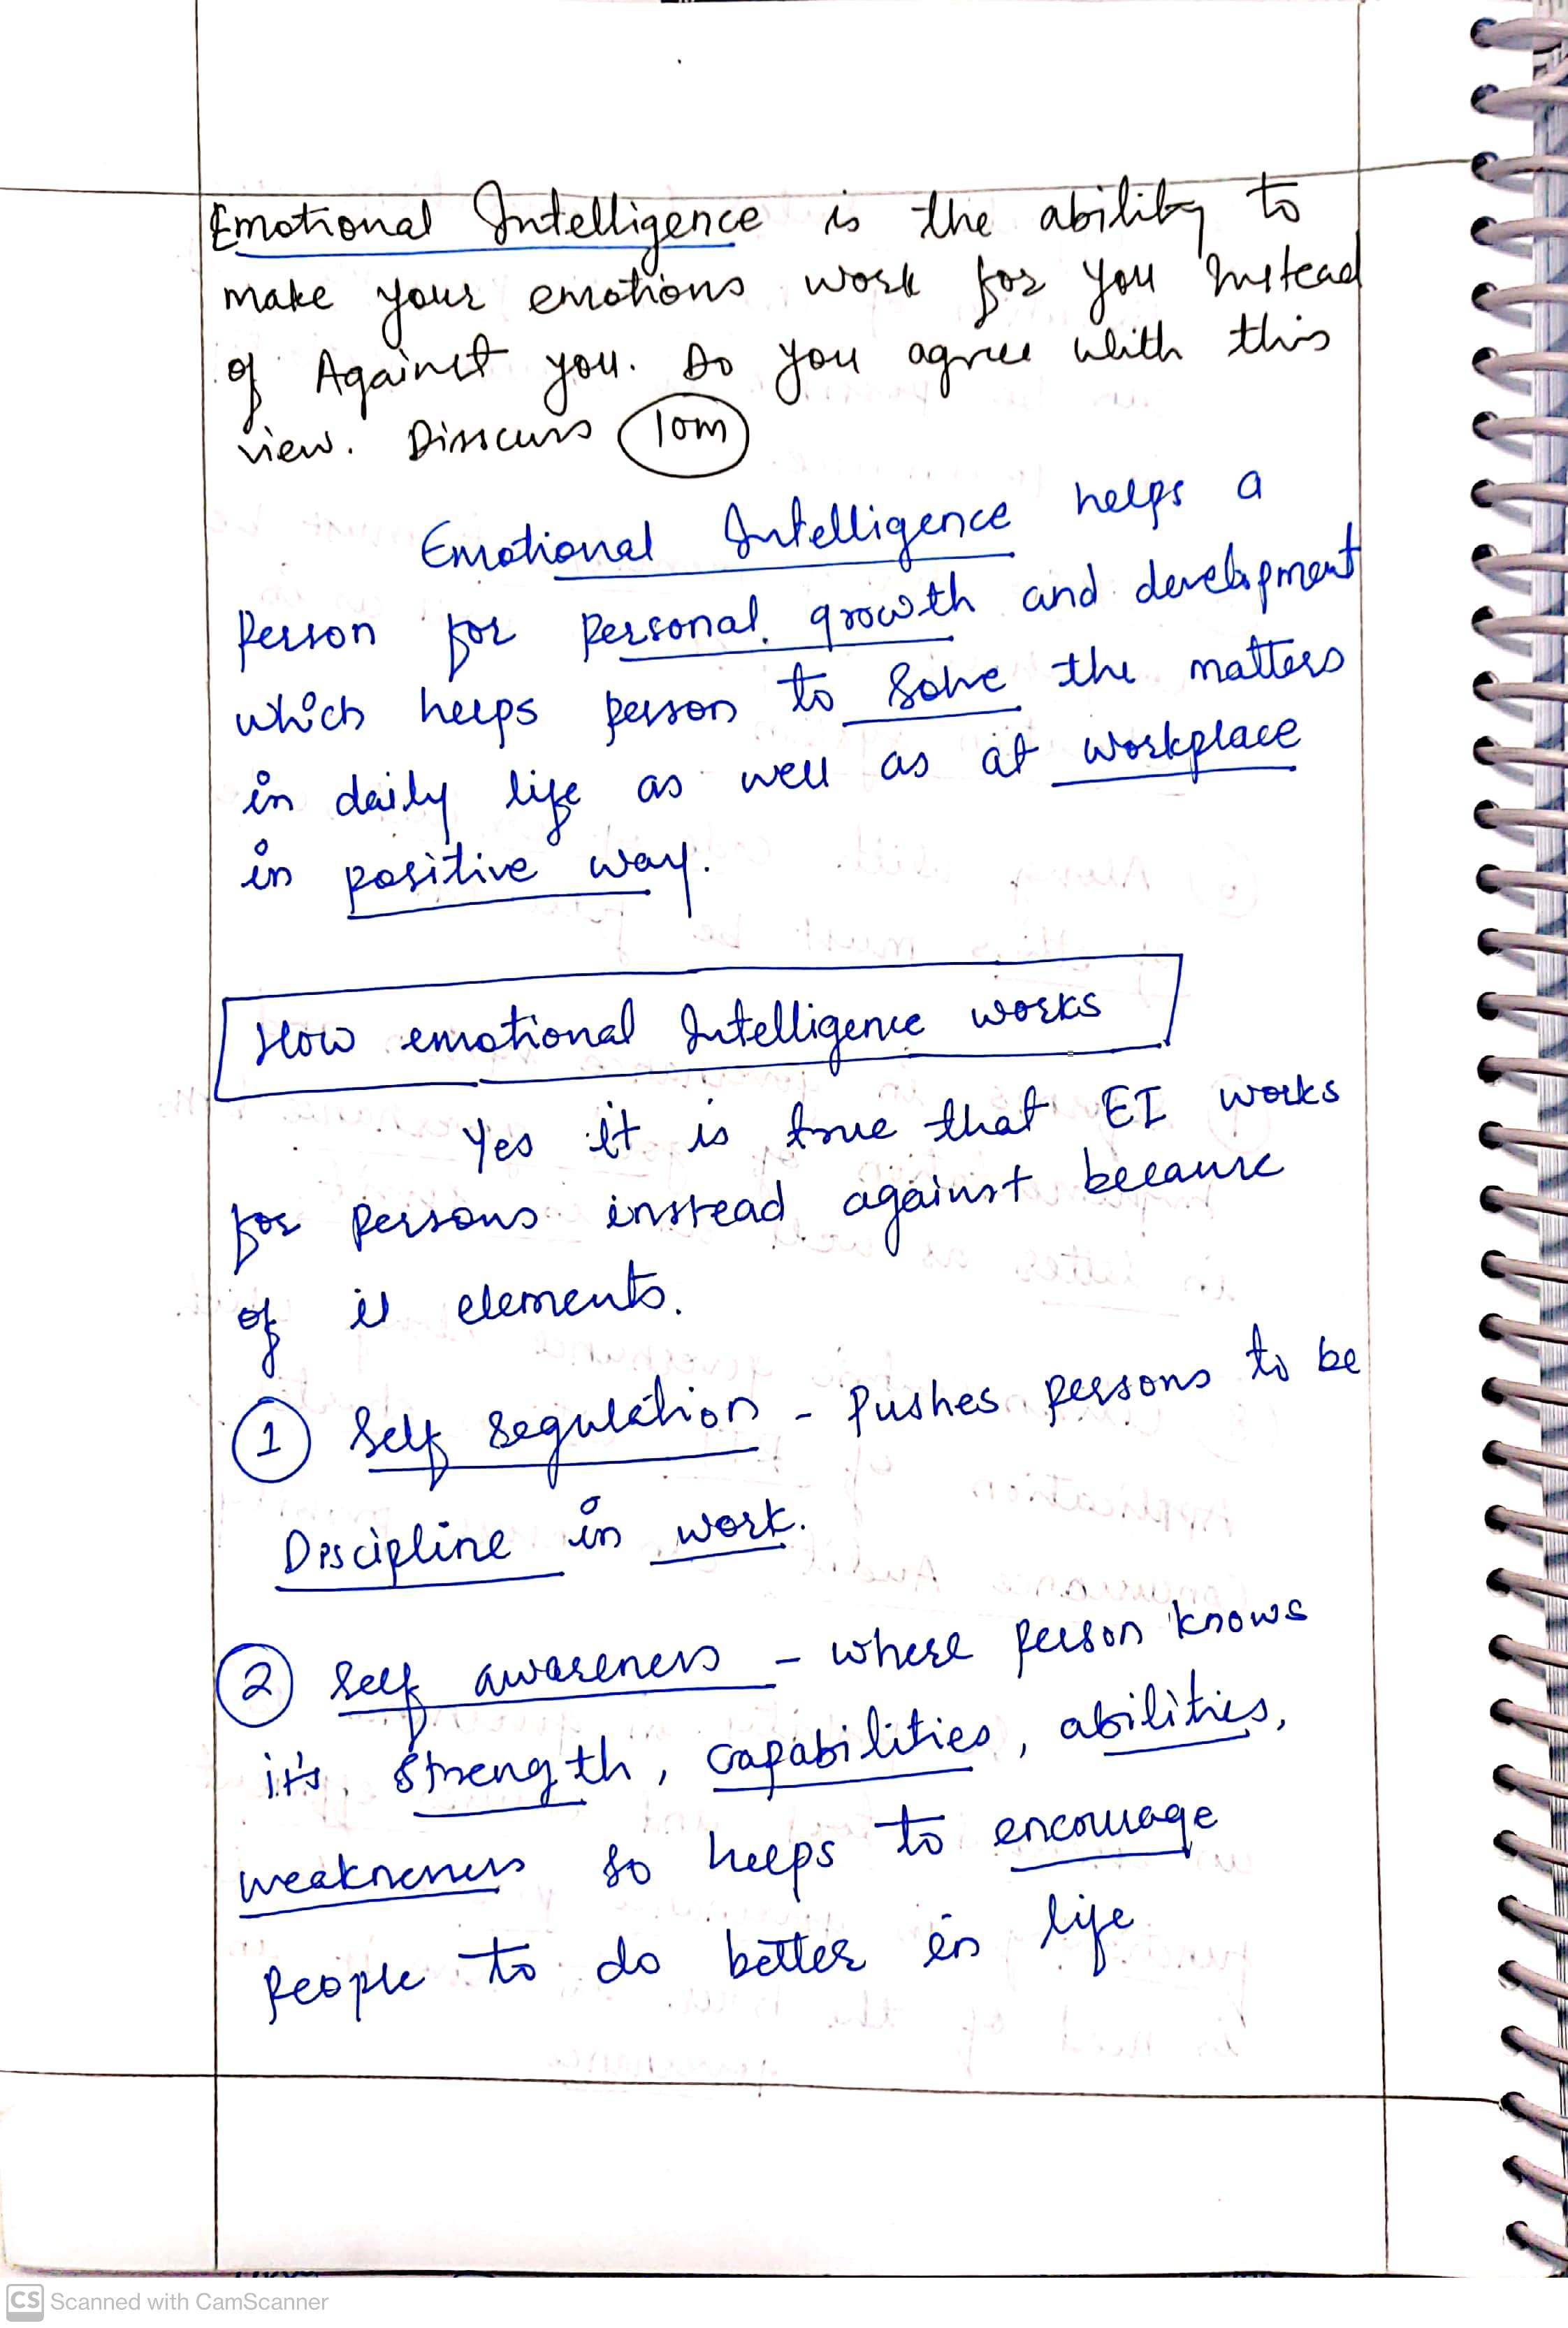 Emotional Intelligence is the ability to
make your emotions work for you Instead
of Against you. Do you agree with this
view. Disscuss 10m
Emotional Intelligence helps a
Person for personal growth and development
which helps person to solve the matters
in daily life as well as at workplace
in positive way.
How emotional Intelligence works
Yes it is true that EI works
for persons instead against because
of it elements.
1 Self regulation - Pushes persons to be
Discipline in work.
2 Self awareness - where person knows
it's strength, capabilities, abilities,
weaknesses so helps to encourage
People to do better in life
CS Scanned with CamScanner